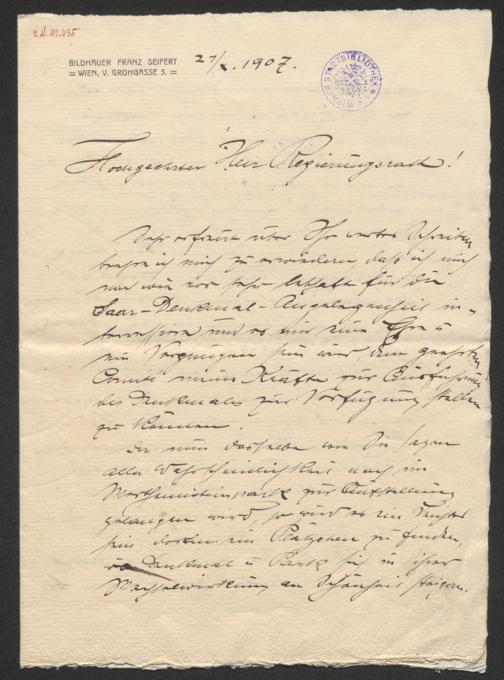 BILDHAUER FRANZ SEIFERT
WIEN, V. GROHGASSE 5.
27/X. 1907.
WIENER STADTBIBLIOTHEK
Hochgeehrter Herr Regierungsrath!
Sehr erfreut über Ihr wertes Schreiben
beehre ich mich zu erwiedern daß ich mich
nach wie vor sehr lebhaft für die
Saar-Denkmal-Angelegenheit in-
teressire und es mir eine Ehre u
ein Vergnügen sein wird dem geehrten
Comité meine Kräfte zur Ausführung
des Denkmales zur Verfügung stellen
zu können.
Da nun dasselbe wie Sie sagen
aller Wahrscheinlichkeit nach im
Wertheimsteinpark zur Aufstellung
gelangen wird, so wird es ein Leichtes
sein dorten ein Plätzchen zu finden,
wo Denkmal u Park sich in ihrer
Wechselwirkung an Schönheit steigern.